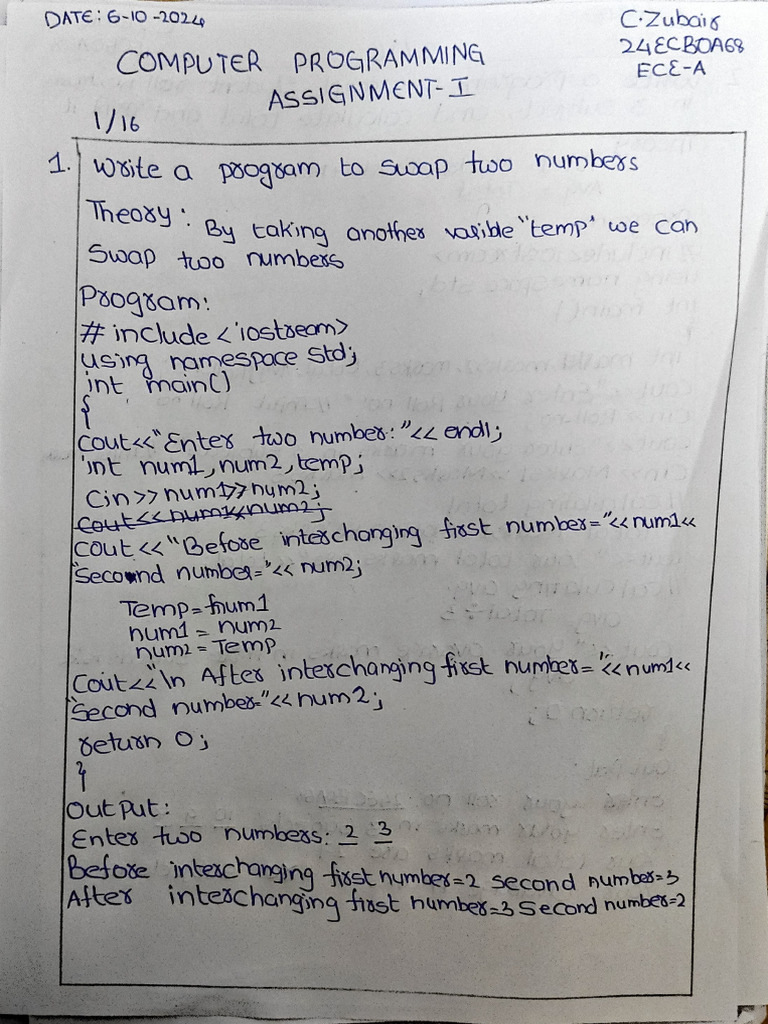 DATE: 6-10-2024
C.Zubair
24ECB0A68
ECE-A
COMPUTER PROGRAMMING
ASSIGNMENT-I
1/16
1. Write a program to swap two numbers
Theory: By taking another varible "temp" we can
Swap two numbers
Program:
# include <iostream>
using namespace std;
int main()
{
cout<<"Enter two number:"<< endl;
int num1, num2, temp;
Cin>>num1>>num2;
cout<<num1<<num2;
cout <<"Before interchanging first number="<<num1<<
"Second number="<< num2;
Temp= num1
num1 = num2
num2 = Temp
Cout<<"\n After interchanging first number= "<<num1<<
"Second number="<<num2;
return 0;
}
Output:
Enter two numbers: 2 3
Before interchanging first number=2 second number=3
After interchanging first number=3 Second number=2